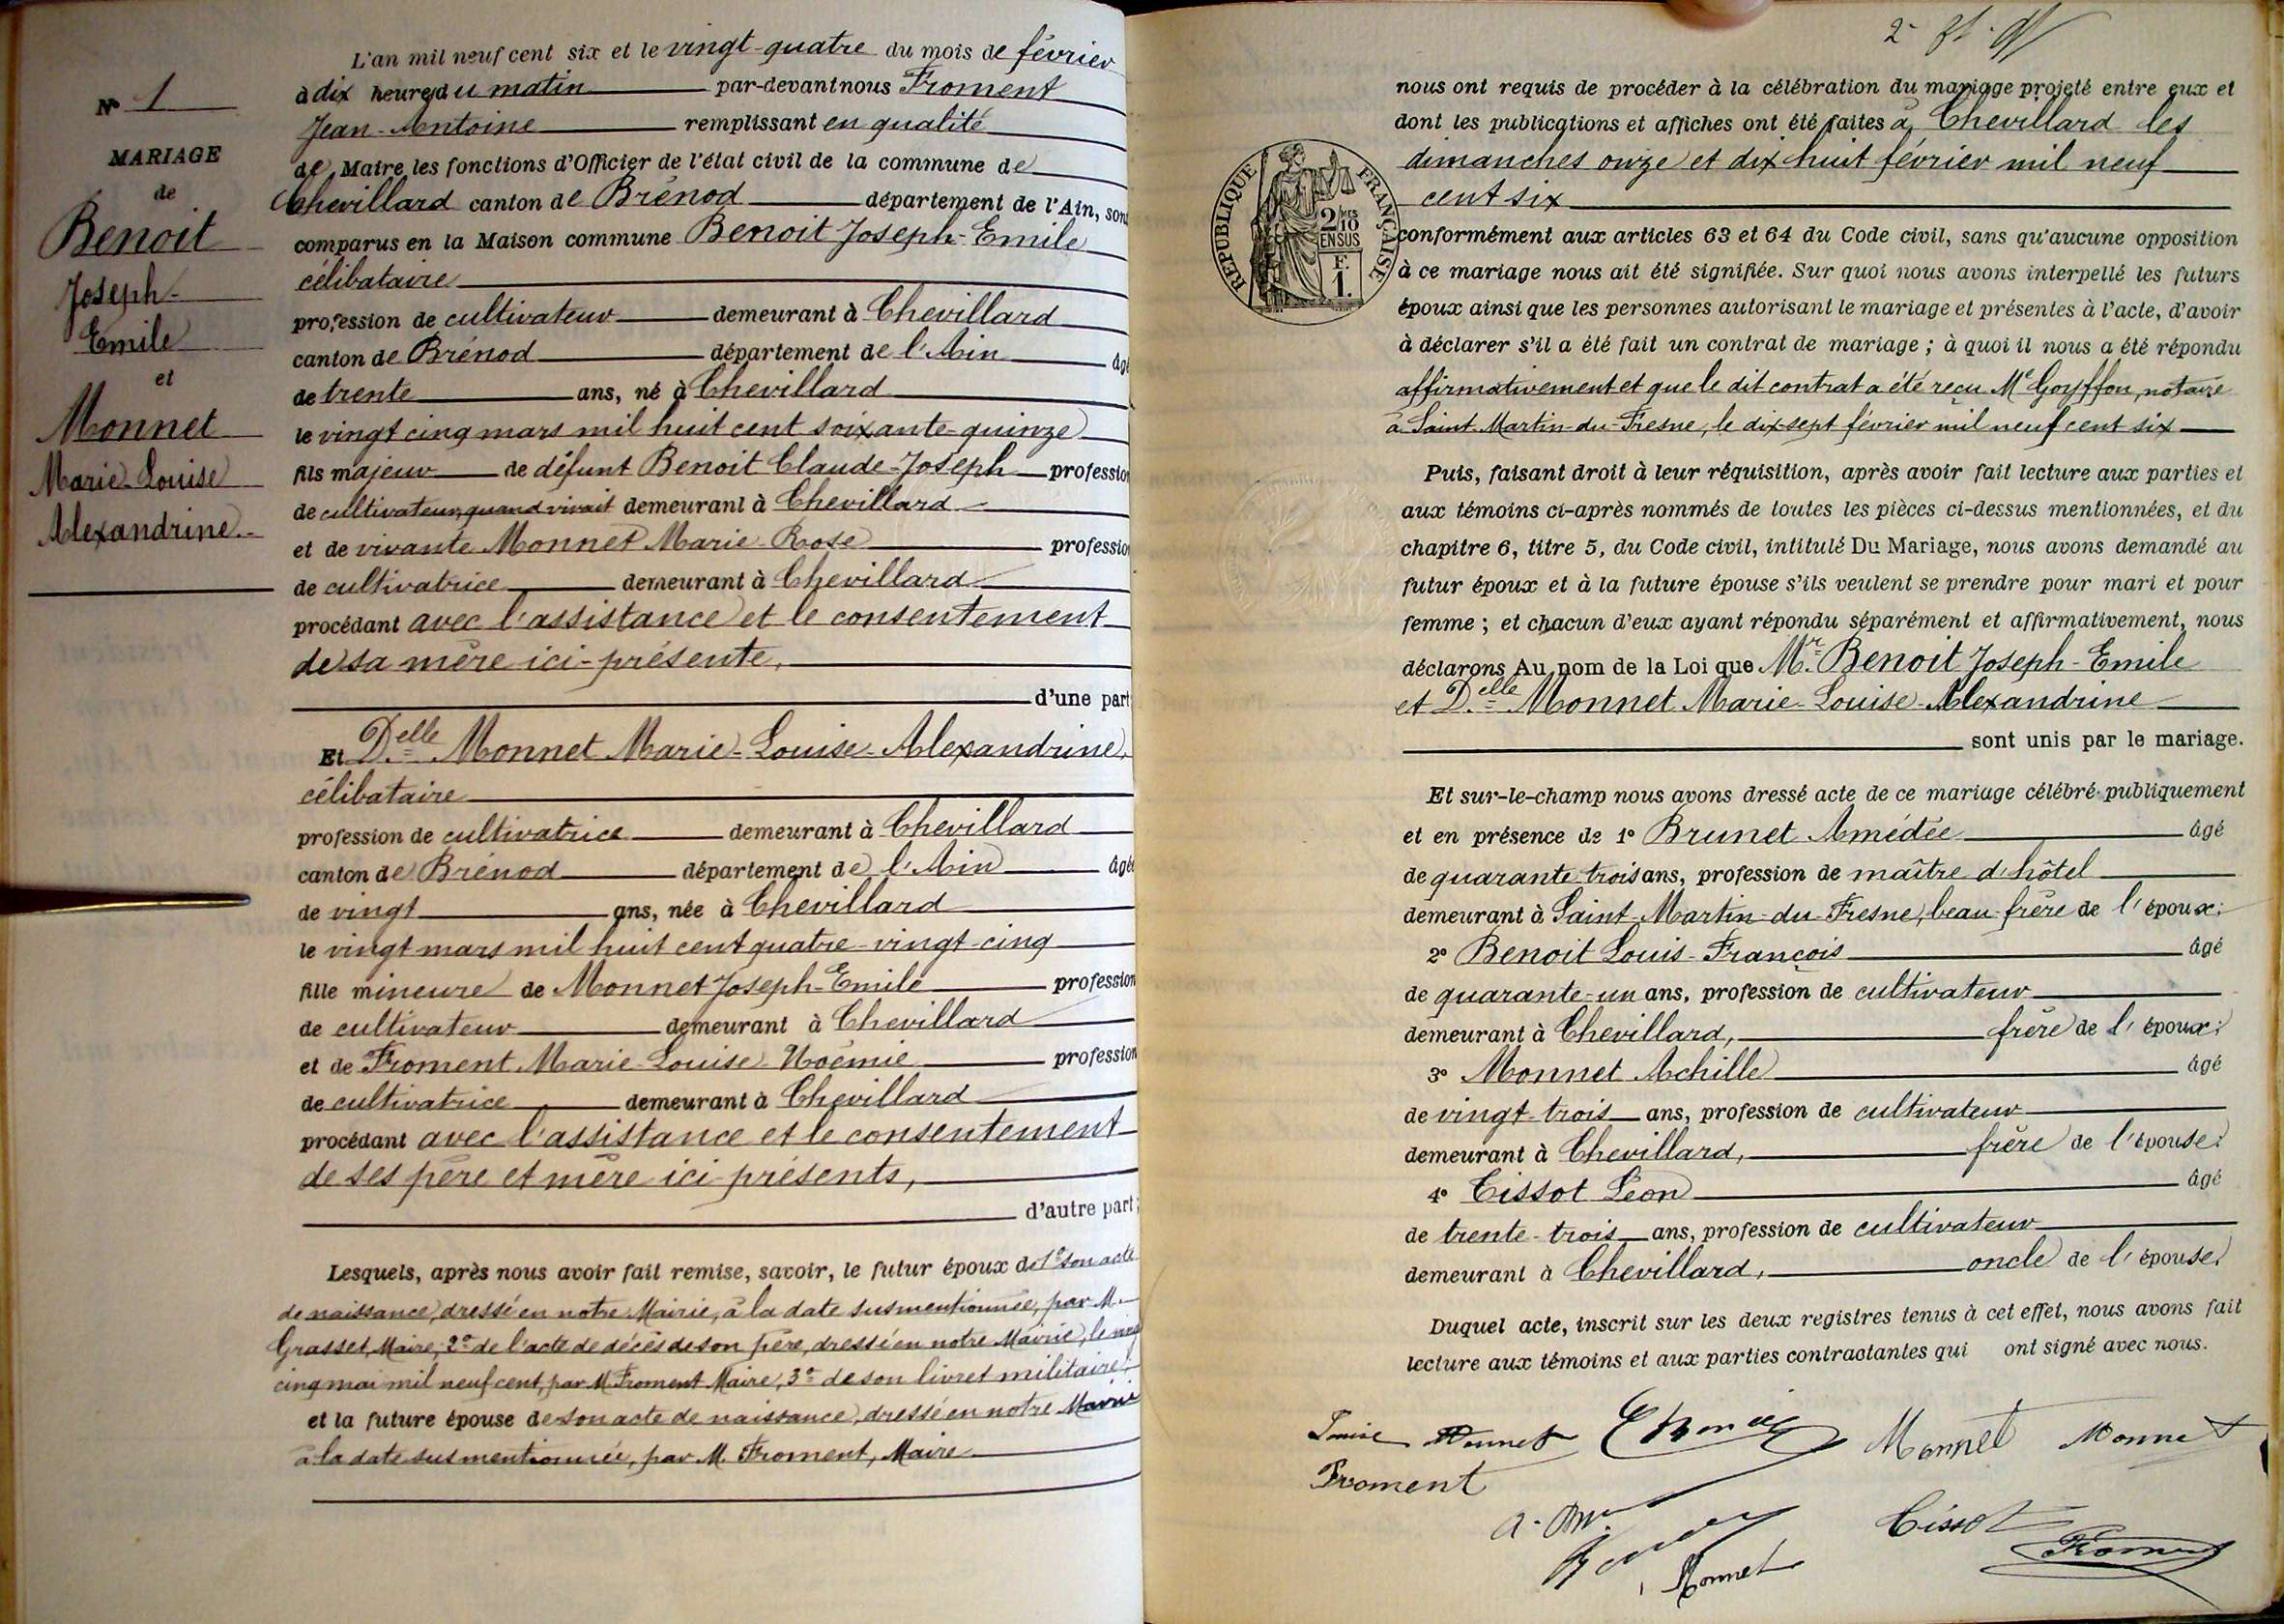 N° 1
MARIAGE
de
Benoit
Joseph-
Emile
et
Monnet
Marie-Louise
Alexandrine.-
L'an mil neuf cent six et le vingt-quatre du mois de février
à dix heures du matin par-devant nous Froment
Jean-Antoine remplissant en qualité
de Maire les fonctions d'Officier de l'état civil de la commune de
Chevillard canton de Brénod département de l'Ain, sont
comparus en la Maison commune Benoit Joseph-Emile
célibataire
profession de cultivateur demeurant à Chevillard
canton de Brénod département de l'Ain âgé
de trente ans, né à Chevillard
le vingt cinq mars mil huit cent soixante-quinze
fils majeur de défunt Benoit Claude-Joseph profession
de cultivateur, quand vivait demeurant à Chevillard
et de vivante Monnet Marie-Rose profession
de cultivatrice demeurant à Chevillard
procédant avec l'assistance et le consentement
de sa mère ici-présente,
d'une part
Et Delle Monnet Marie-Louise-Alexandrine,
célibataire
profession de cultivatrice demeurant à Chevillard
canton de Brénod département de l'Ain âgée
de vingt ans, née à Chevillard
le vingt mars mil huit cent quatre-vingt-cinq
fille mineure de Monnet Joseph-Emile profession
de cultivateur demeurant à Chevillard
et de Froment Marie-Louise-Noémie profession
de cultivatrice demeurant à Chevillard
procédant avec l'assistance et le consentement
de ses père et mère ici présents,
d'autre part;
Lesquels, après nous avoir fait remise, savoir, le futur époux de 1° son acte
de naissance, dressé en notre Mairie, à la date susmentionnée, par M.
Grasset, Maire, 2° de l'acte de décès de son père, dressé en notre Mairie, le
cinq mai mil neuf cent, par M. Froment Maire, 3° de son livret militaire.
et la future épouse de son acte de naissance, dressé en notre Mairie
à la date susmentionnée, par M. Froment, Maire
nous ont requis de procéder à la célébration du mariage projeté entre eux et
dont les publications et affiches ont été faites à Chevillard les
dimanches onze et dix huit février mil neuf
cent six
RÉPUBLIQUE FRANÇAISE
2/10
EN SUS
F.
1.
conformément aux articles 63 et 64 du Code civil, sans qu'aucune opposition
à ce mariage nous ait été signifiée. Sur quoi nous avons interpellé les futurs
époux ainsi que les personnes autorisant le mariage et présentes à l'acte, d'avoir
à déclarer s'il a été fait un contrat de mariage ; à quoi il nous a été répondu
affirmativement et que le dit contrat a été reçu Me Goyffon, notaire
à Saint-Martin-du-Fresne, le dix sept février mil neuf cent six
Puis, faisant droit à leur réquisition, après avoir fait lecture aux parties et
aux témoins ci-après nommés de toutes les pièces ci-dessus mentionnées, et du
chapitre 6, titre 5, du Code civil, intitulé Du Mariage, nous avons demandé au
futur époux et à la future épouse s'ils veulent se prendre pour mari et pour
femme ; et chacun d'eux ayant répondu séparément et affirmativement, nous
déclarons Au nom de la Loi que Mr Benoit Joseph-Emile
et Delle Monnet Marie-Louise-Alexandrine
sont unis par le mariage.
Et sur-le-champ nous avons dressé acte de ce mariage célébré publiquement
et en présence de 1° Brunet Amédée âgé
de quarante trois ans, profession de maître d'hôtel
demeurant à Saint-Martin-du-Fresne, beau-frère de l'époux;
2° Benoit Louis-François âgé
de quarante-un ans, profession de cultivateur
demeurant à Chevillard, frère de l'époux;
3° Monnet Achille âgé
de vingt-trois ans, profession de cultivateur
demeurant à Chevillard, frère de l'épouse;
4° Tissot Léon âgé
de trente-trois ans, profession de cultivateur
demeurant à Chevillard, oncle de l'épouse.
Duquel acte, inscrit sur les deux registres tenus à cet effet, nous avons fait
lecture aux témoins et aux parties contractantes qui ont signé avec nous.
Louise Monnet Monnet Monnet
Froment
Tissot
Monnet Froment